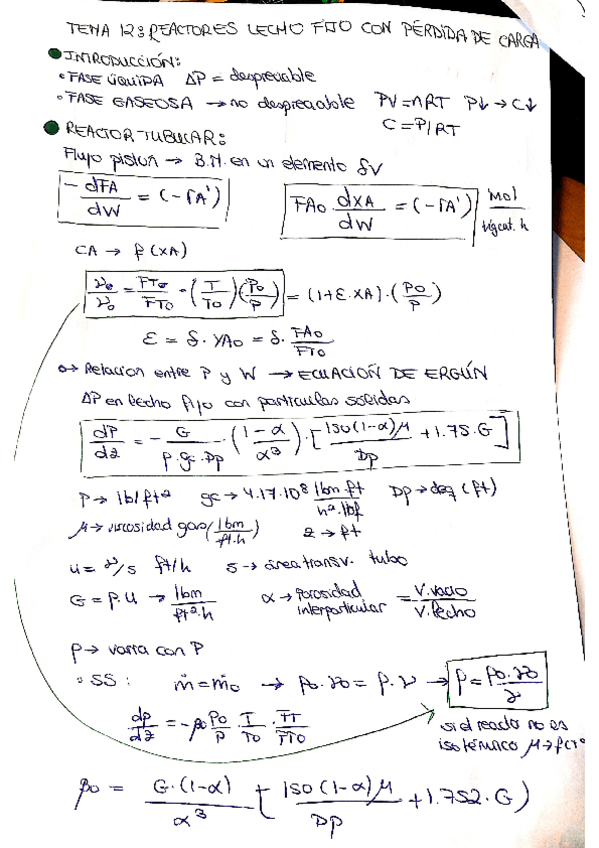 TEMA 12: REACTORES LECHO FIJO CON PÉRDIDA DE CARGA
INTRODUCCIÓN:
FASE LÍQUIDA ΔP = despreciable
FASE GASEOSA → no despreciable PV=nRT P↓ → C↓
C = P/RT
REACTOR TUBULAR:
Flujo pistón → B.M. en un elemento δV
-dFA/dW = (-rA') FA0 · dXA/dW = (-rA') mol/kgcat. h
CA → f (XA)
= (1+ε·XA)·(P0/P)
ε = δ · YA0 = δ · FA0/FT0
Relacion entre P y W → ECUACIÓN DE ERGÚN
ΔP en lecho fijo con particulas sólidas
dP/dz = - G/ρ·gc·Dp · (1-α/α³) · [150(1-α)μ/Dp + 1.75·G]
P → lb/ft² gc → 4.17·10⁸ lbm·ft/h²·lbf Dp → deq (ft)
μ → viscosidad gas (lbm/ft·h) z → ft
u = γ/s ft/h s → área transv. tubo
G = ρ·u → lbm/ft²·h α → porosidad interparticular = V.vacio/V.lecho
ρ → varia con P
SS: ṁ = ṁ0 → ρ0·γ0 = ρ·γ → ρ = ρ0·γ0/γ
dP/dz = -β0 P0/P · T/T0 · FT/FT0
si el reactor no es
isotérmico μ → f(Tª
β0 = G·(1-α)/α³ ( 150(1-α)μ/Dp + 1.752·G)